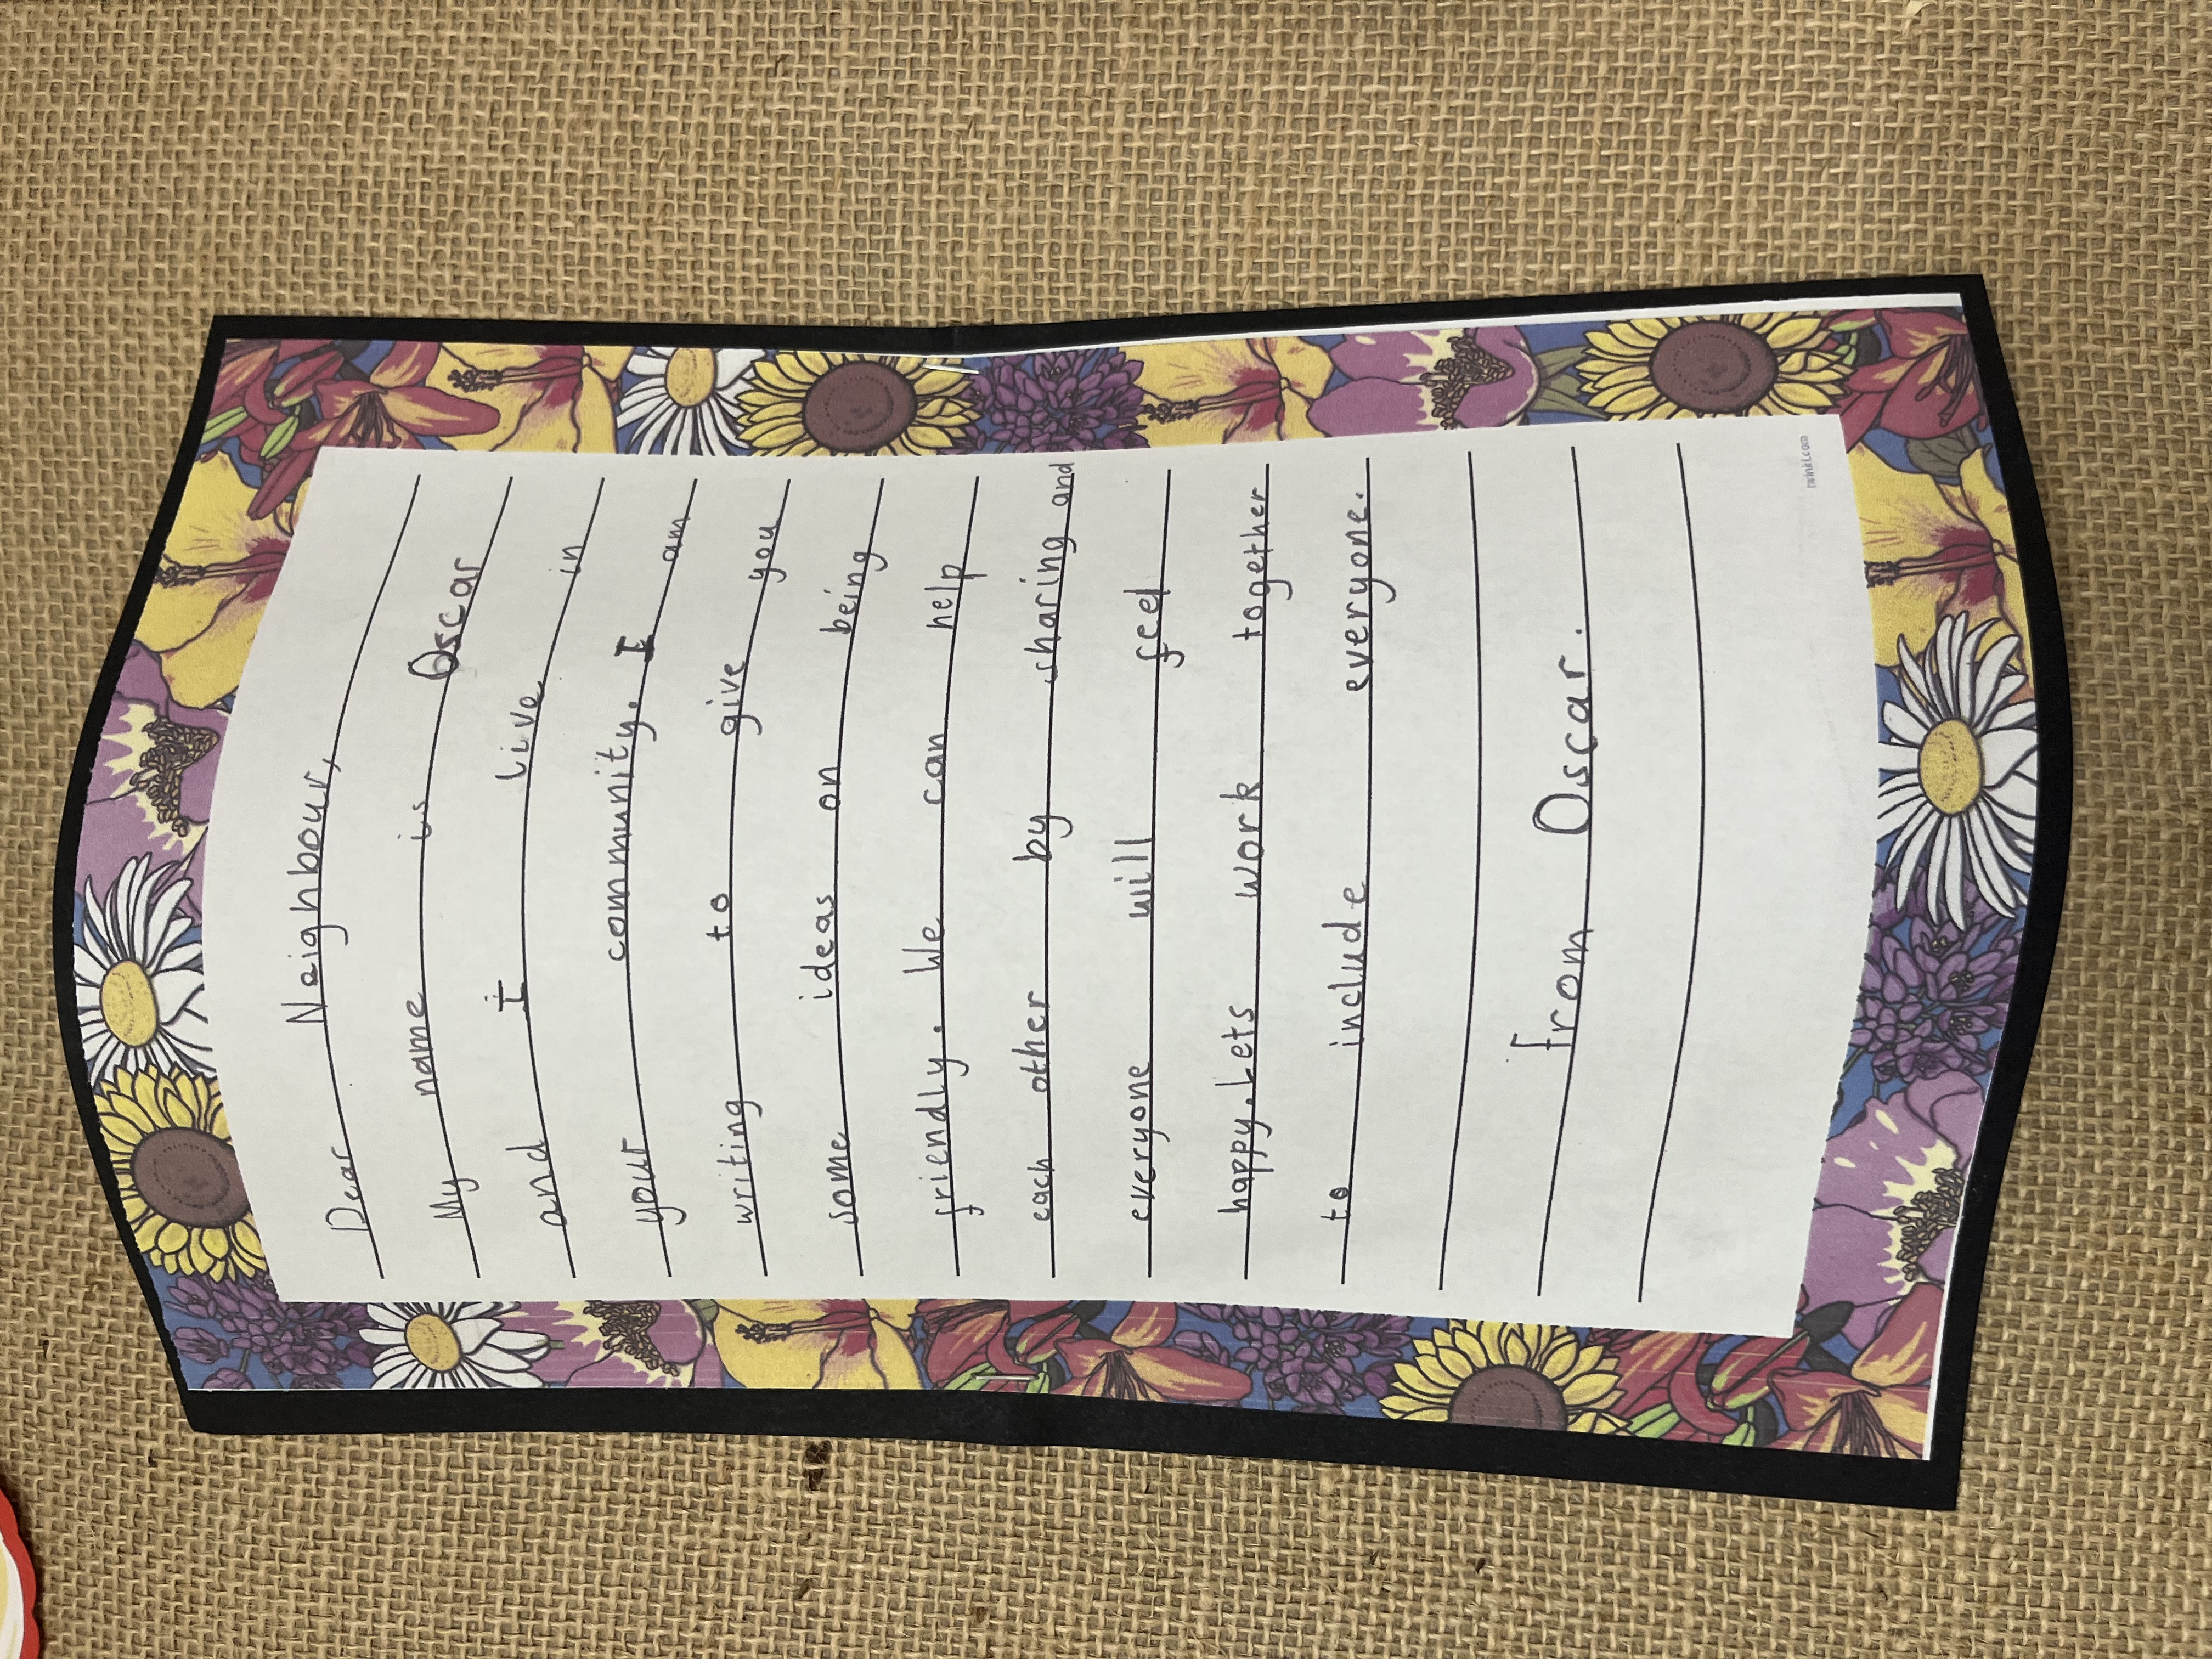 Dear Neighbour,
My name is Oscar
and I live in
your community. I am
writing to give you
some ideas on being
friendly. We can help
each other by sharing and
everyone will feel
happy. Lets work together
to include everyone.
from Oscar.
twinkl.com